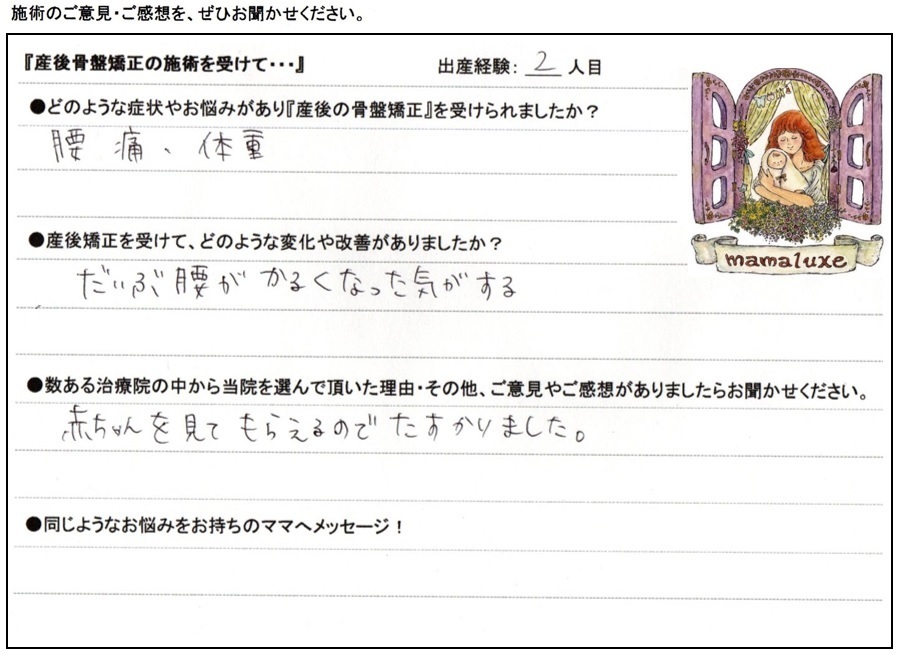 施術のご意見・ご感想を、ぜひお聞かせください。
『産後骨盤矯正の施術を受けて・・・』 出産経験: 2 人目
●どのような症状やお悩みがあり『産後の骨盤矯正』を受けられましたか？
腰痛、体重
●産後矯正を受けて、どのような変化や改善がありましたか？
だいぶ腰がかるくなった気がする
mamaluxe
●数ある治療院の中から当院を選んで頂いた理由・その他、ご意見やご感想がありましたらお聞かせください。
赤ちゃんを見てもらえるのでたすかりました。
●同じようなお悩みをお持ちのママへメッセージ！